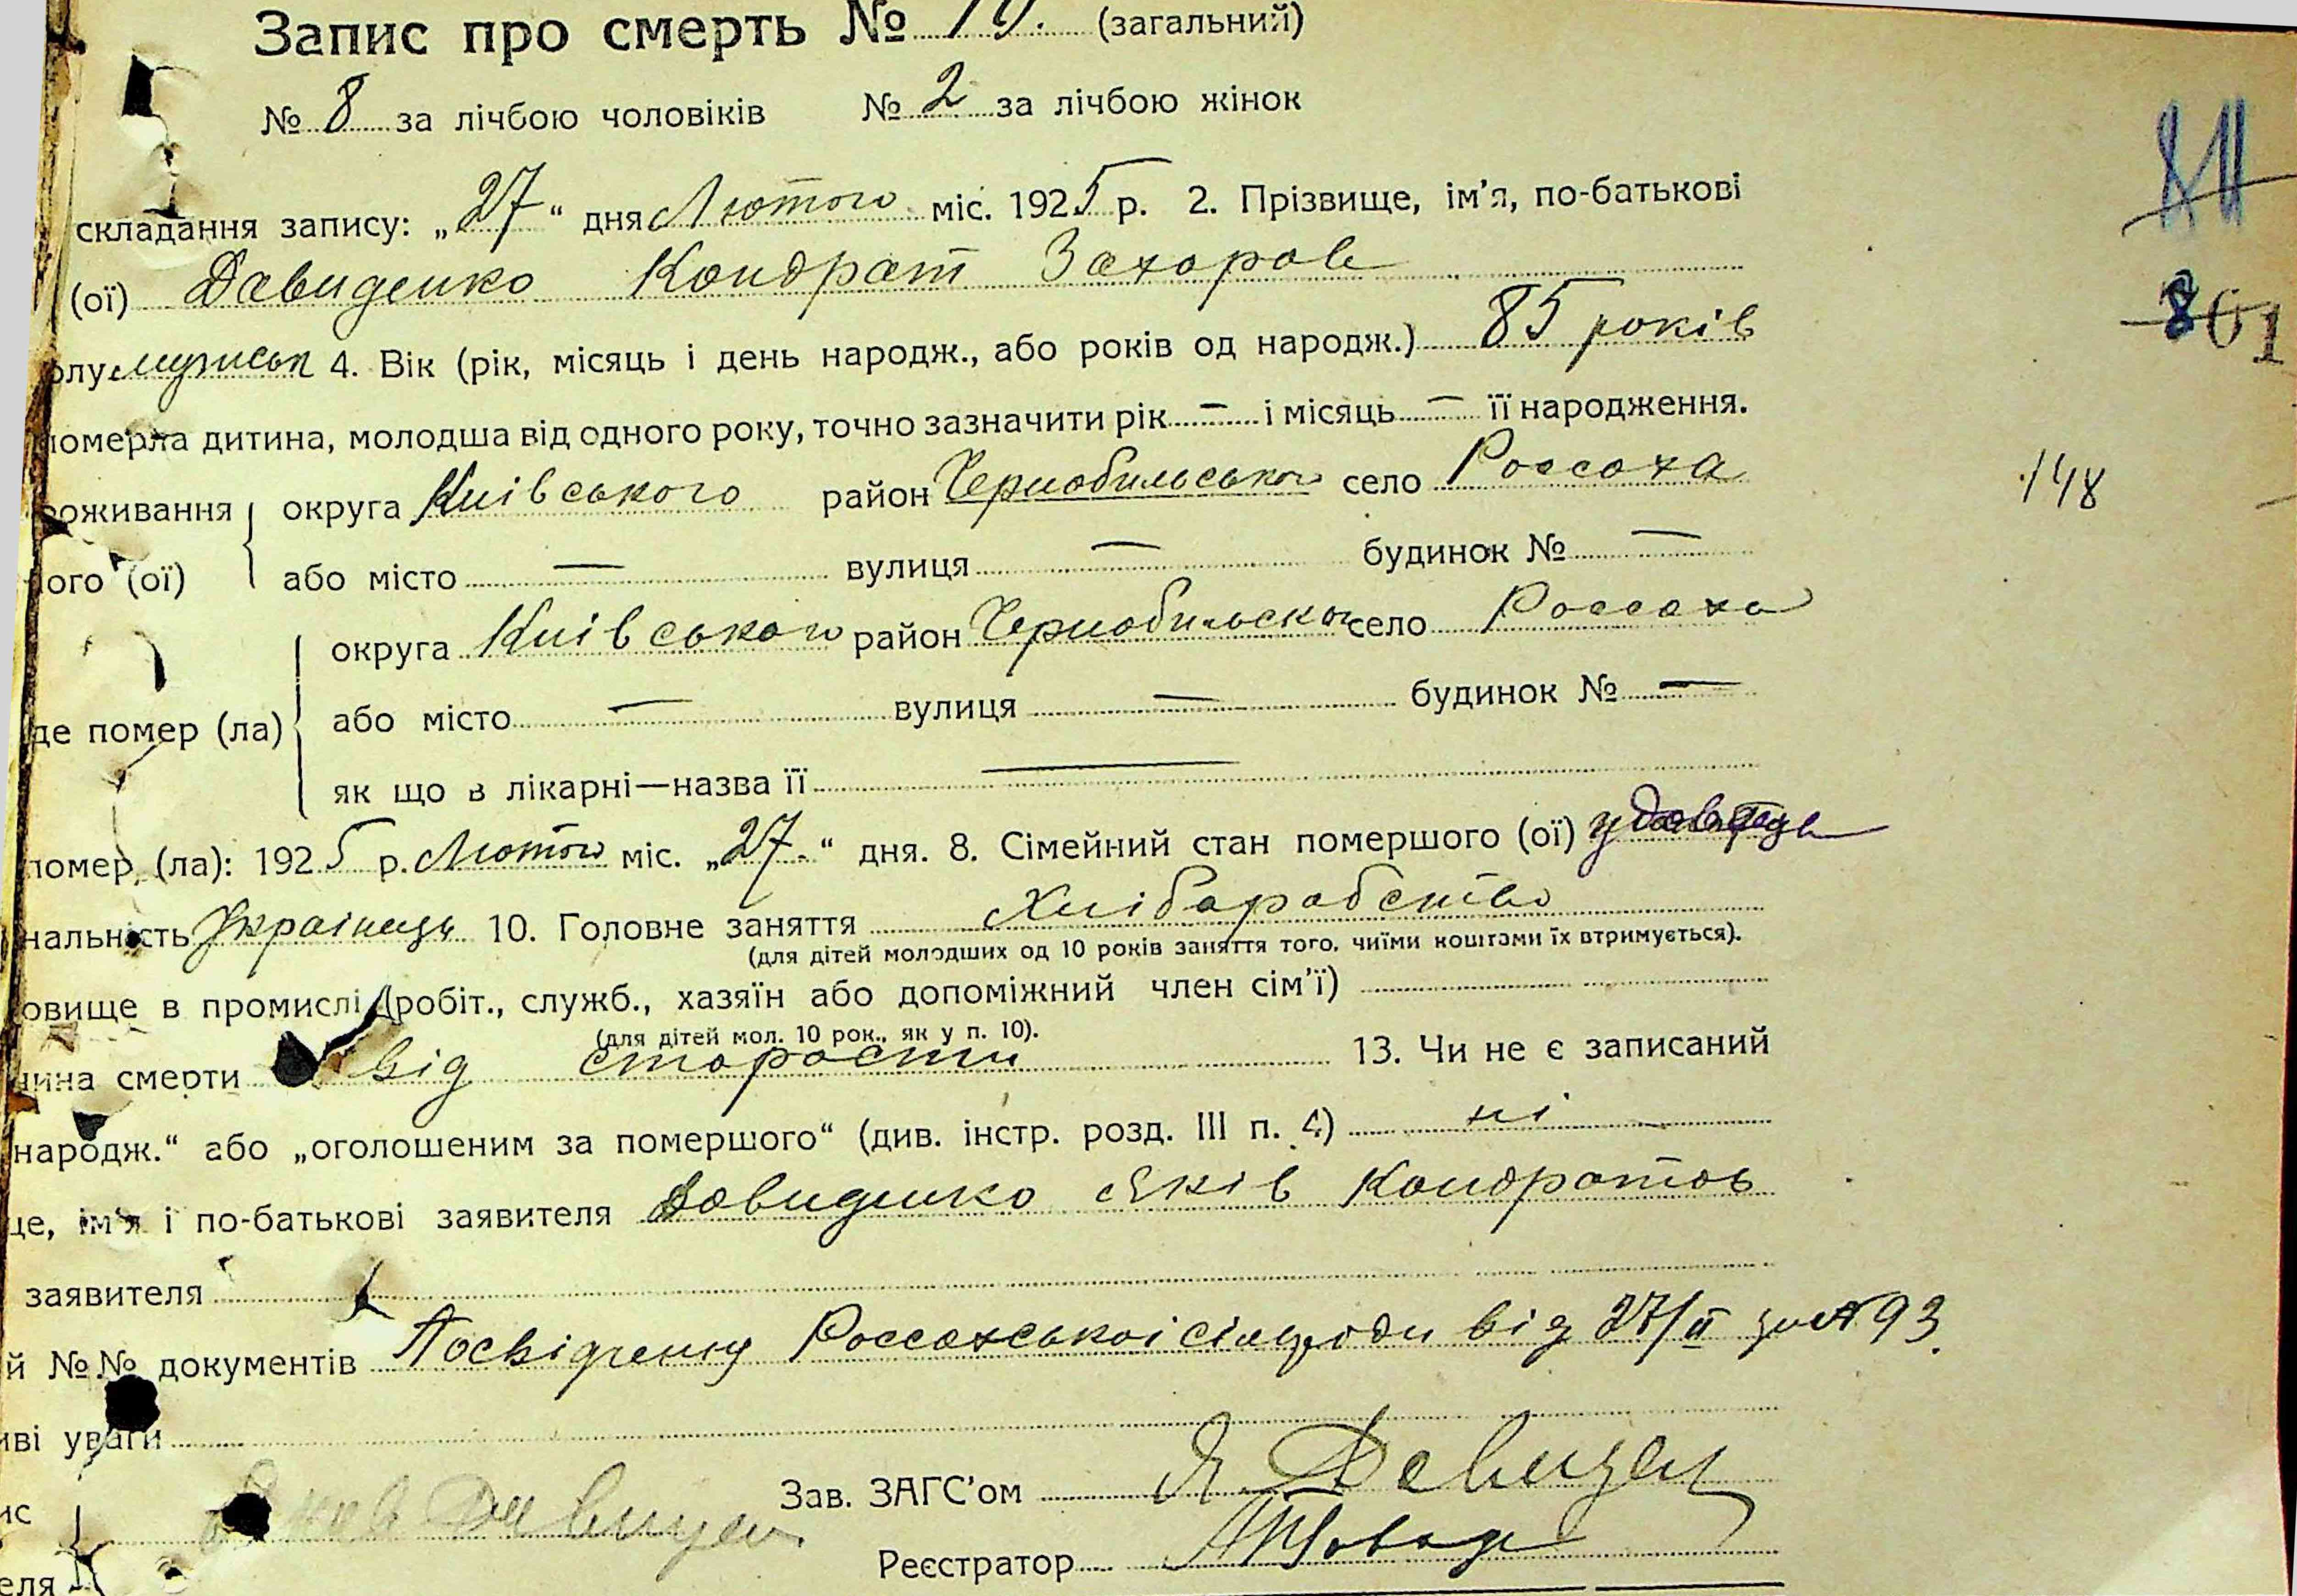 Запис про смерть № 10. (загальний)
№ 8 за лічбою чоловіків № 2 за лічбою жінок
складання запису: „27“ дня Лютого міс. 1925 р. 2. Прізвище, ім’я, по-батькові
(ої) Давиденко Кондрат Захаров
олу мужськ 4. Вік (рік, місяць і день народж., або років од народж.) 85 років
померла дитина, молодша від одного року, точно зазначити рік — і місяць — її народження.
роживання округа Київського район Чернобильського село Россоха
ого (ої) або місто — вулиця — будинок № —
округа Київського район Чернобильског село Россоха
де помер (ла) або місто — вулиця — будинок № —
як що в лікарні—назва її —
помер (ла): 1925 р. Лютого міс. „27.“ дня. 8. Сімейний стан помершого (ої) удовець
нальність Украінець 10. Головне заняття Хліборобство
(для дітей молодших од 10 років заняття того, чиїми коштами їх втримується).
овище в промислі (робіт., служб., хазяїн або допоміжний член сім’ї)
(для дітей мол. 10 рок., як у п. 10).
чина смерти від старости 13. Чи не є записаний
народж.“ або „оголошеним за помершого“ (див. інстр. розд. III п. 4) ні
це, ім’я і по-батькові заявителя Давиденко Яків Кондратов
заявителя
й №№ документів Посвідчення Россохської сільради від 27/II за № 93.
иві уваги
ис Яков Давиден
Зав. ЗАГС’ом Я Давиден
Реєстратор
еля
148